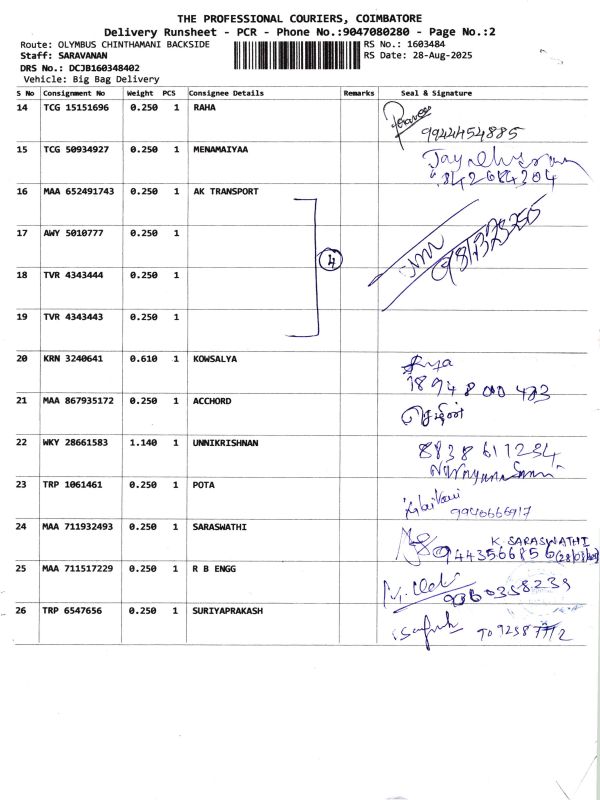 THE PROFESSIONAL COURIERS, COIMBATORE
Delivery Runsheet - PCR - Phone No.:9047080280 - Page No.:2
Route: OLYMBUS CHINTHAMANI BACKSIDE RS No.: 1603484
Staff: SARAVANAN RS Date: 28-Aug-2025
DRS No.: DCJB160348402
Vehicle: Big Bag Delivery
S No Consignment No Weight PCS Consignee Details Remarks Seal & Signature
14 TCG 15151696 0.250 1 RAHA
9944454885
15 TCG 50934927 0.250 1 MENAMAIYAA
16 MAA 652491743 0.250 1 AK TRANSPORT
17 AWY 5010777 0.250 1
4
18 TVR 4343444 0.250 1
19 TVR 4343443 0.250 1
20 KRN 3240641 0.610 1 KOWSALYA
21 MAA 867935172 0.250 1 ACCHORD
22 WKY 28661583 1.140 1 UNNIKRISHNAN
8838611234
23 TRP 1061461 0.250 1 POTA
9940666917
24 MAA 711932493 0.250 1 SARASWATHI
K SARASWATHI
9443566856
25 MAA 711517229 0.250 1 R B ENGG
26 TRP 6547656 0.250 1 SURIYAPRAKASH